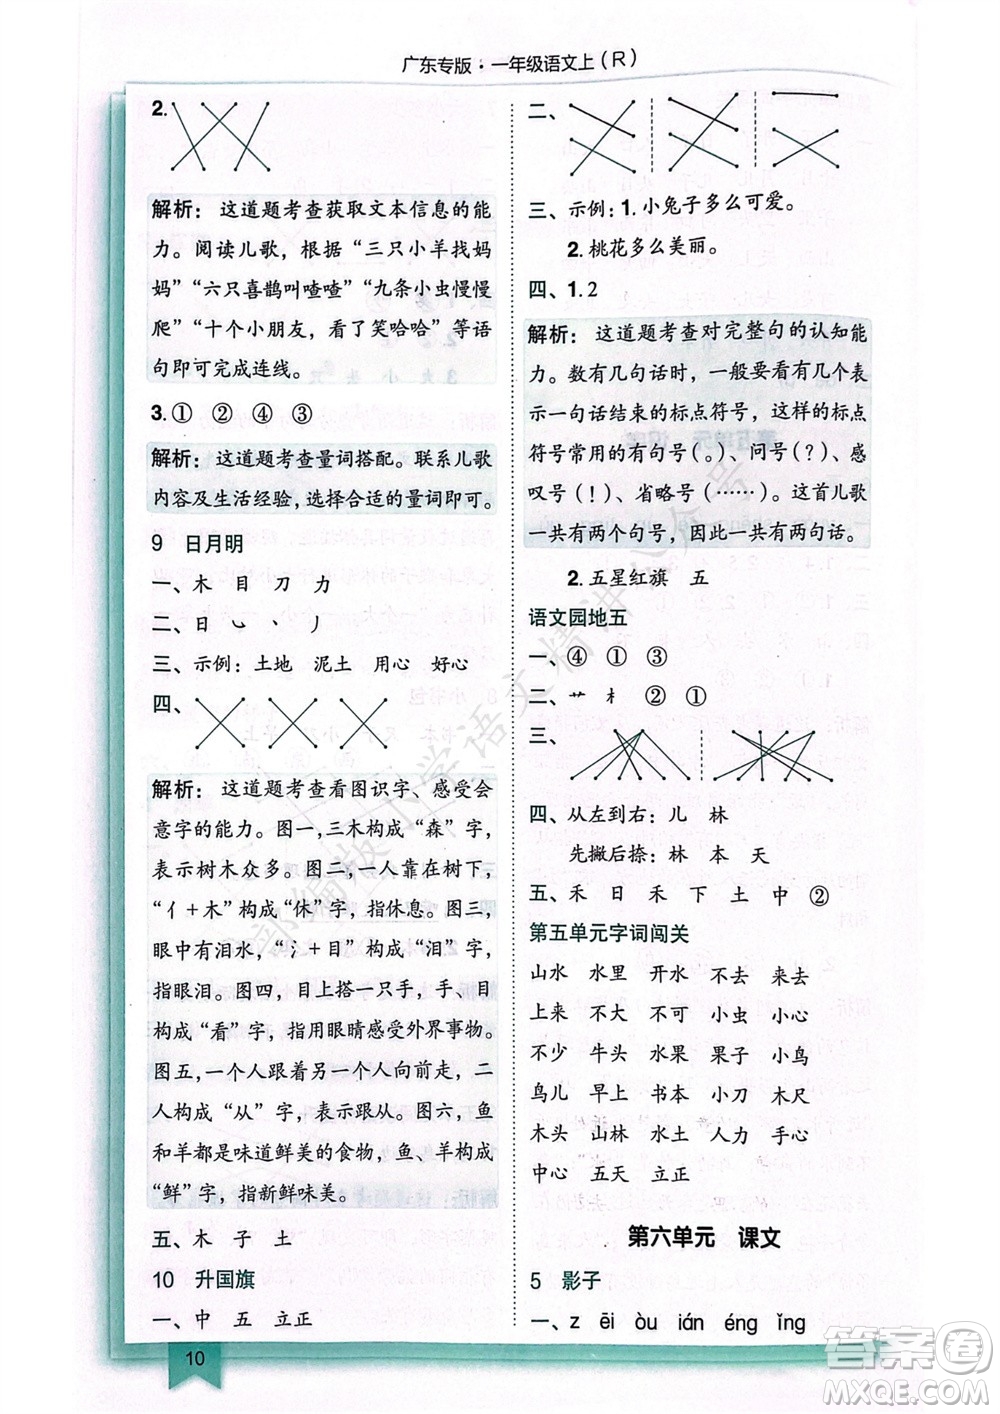 广东专版·一年级语文上(R)
2.
解析：这道题考查获取文本信息的能
力。阅读儿歌，根据“三只小羊找妈
妈”“六只喜鹊叫喳喳”“九条小虫慢慢
爬”“十个小朋友，看了笑哈哈”等语
句即可完成连线。
3.① ② ④ ③
解析：这道题考查量词搭配。联系儿歌
内容及生活经验，选择合适的量词即可。
9 日月明
一、木 目 刀 力
二、日 ㇃ 丶 丿
三、示例：土地 泥土 用心 好心
四、
解析：这道题考查看图识字、感受会
意字的能力。图一，三木构成“森”字，
表示树木众多。图二，一人靠在树下，
“亻+木”构成“休”字，指休息。图三，
眼中有泪水，“氵+目”构成“泪”字，
指眼泪。图四，目上搭一只手，手、目
构成“看”字，指用眼睛感受外界事物。
图五，一个人跟着一个人向前走，二
人构成“从”字，表示跟从。图六，鱼
和羊都是味道鲜美的食物，鱼、羊构成
“鲜”字，指新鲜味美。
五、木 子 土
10 升国旗
一、中 五 立正
二、
三、示例：1.小兔子多么可爱。
2.桃花多么美丽。
四、1.2
解析：这道题考查对完整句的认知能
力。数有几句话时，一般要看有几个表
示一句话结束的标点符号，这样的标点
符号常用的有句号(。)、问号(？)、感
叹号(！)、省略号(……)。这首儿歌
一共有两个句号，因此一共有两句话。
2.五星红旗 五
语文园地五
一、④ ① ③
二、艹 木 ② ①
三、
四、从左到右：儿 林
先撇后捺：林 本 天
五、禾 日 禾 下 土 中 ②
第五单元字词闯关
山水 水里 开水 不去 来去
上来 不大 不可 小虫 小心
不少 牛头 水果 果子 小鸟
鸟儿 早上 书本 小刀 木尺
木头 山林 水土 人力 手心
中心 五天 立正
第六单元 课文
5 影子
一、z ēi òu ián éng ǐng
10
部编版小学语文精讲公众号
答案卷
MXQE.COM